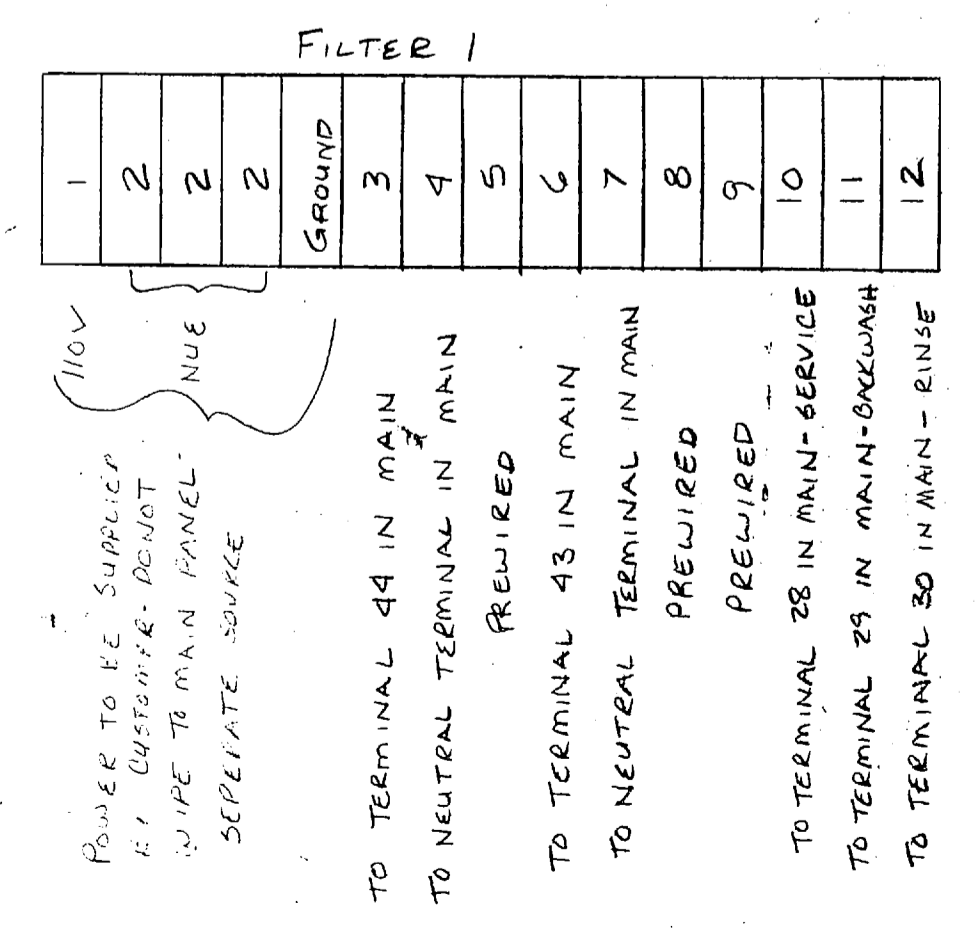 FILTER 1
1
2
2
2
GROUND
3
4
5
6
7
8
9
10
11
12
110V
NUE
POWER TO BE SUPPLIED
BY CUSTOMER - DO NOT
WIRE TO MAIN PANEL -
SEPERATE SOURCE
TO TERMINAL 44 IN MAIN
TO NEUTRAL TERMINAL IN MAIN
PREWIRED
TO TERMINAL 43 IN MAIN
TO NEUTRAL TERMINAL IN MAIN
PREWIRED
PREWIRED
TO TERMINAL 28 IN MAIN - SERVICE
TO TERMINAL 29 IN MAIN - BACKWASH
TO TERMINAL 30 IN MAIN - RINSE